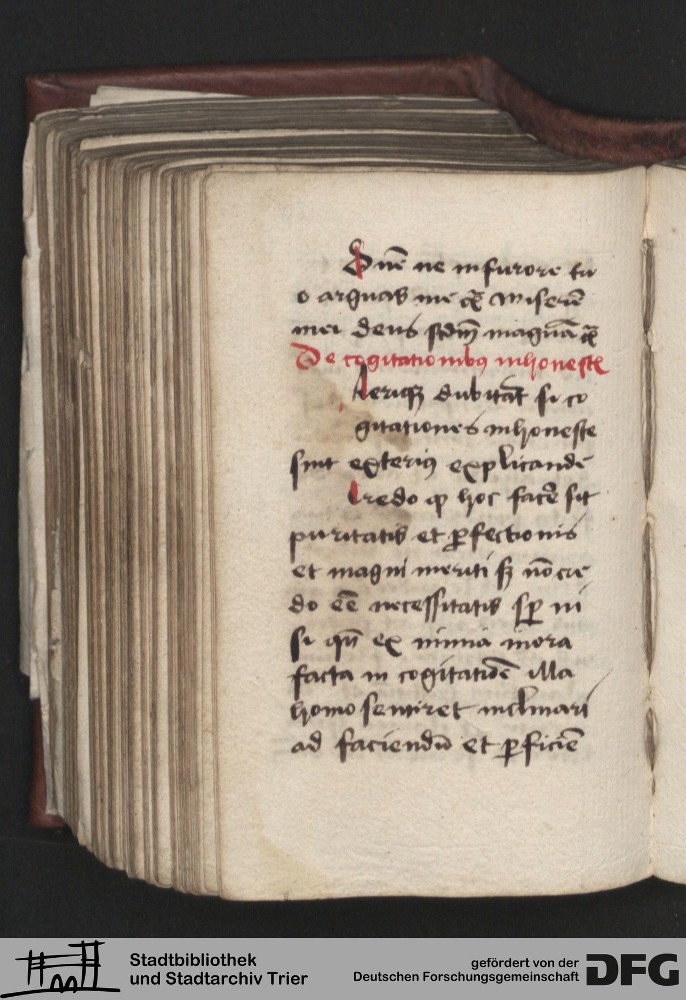 Dnē ne in furore tu
o arguas me ⁊c̄ Miserē
mei deus scdm̄ magnā ⁊c̄
De cogitationibꝰ inhoneste
leriqꝫ dubitāt si co
gitationes inhoneste
sint exteriꝰ explicande
Credo ꝙ hoc facē sit
puritatis et ꝑfectionis
et magni meriti sꝫ nō cre
do eē̄ necessitatis sꝑ ni
si qn̄ ex nimia mora
facta in cogitatiōe illa
homo sentiret inclinari
ad faciendū et ꝑficiē
Stadtbibliothek
und Stadtarchiv Trier
gefördert von der
Deutschen Forschungsgemeinschaft
DFG